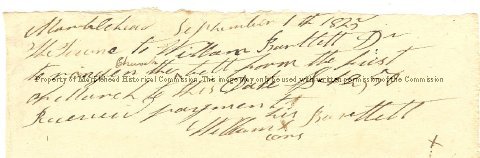 Marblehead September 1th 1825
the Towne to William Bartlett Dr
to ringen the bell form the first
Church
Property of Marblehead Historical Commission. This image may only be used with written permission of the Commission
of March to this Date $
Received payment
his
William X Bartlett
X